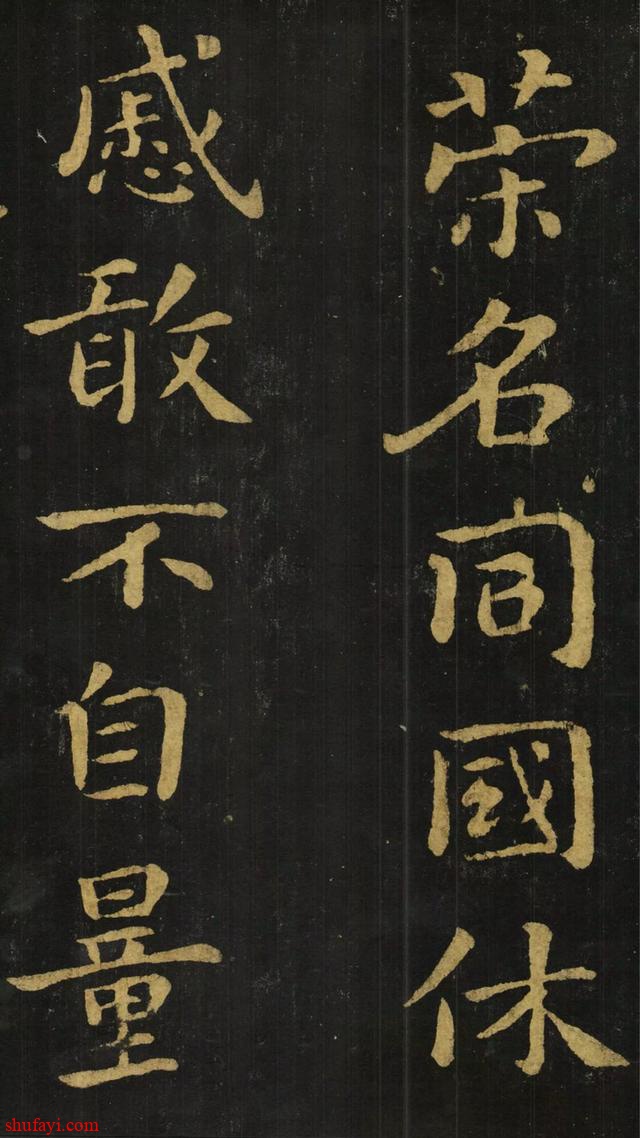 荣名同國休
慼敢不自量
shufayi.com